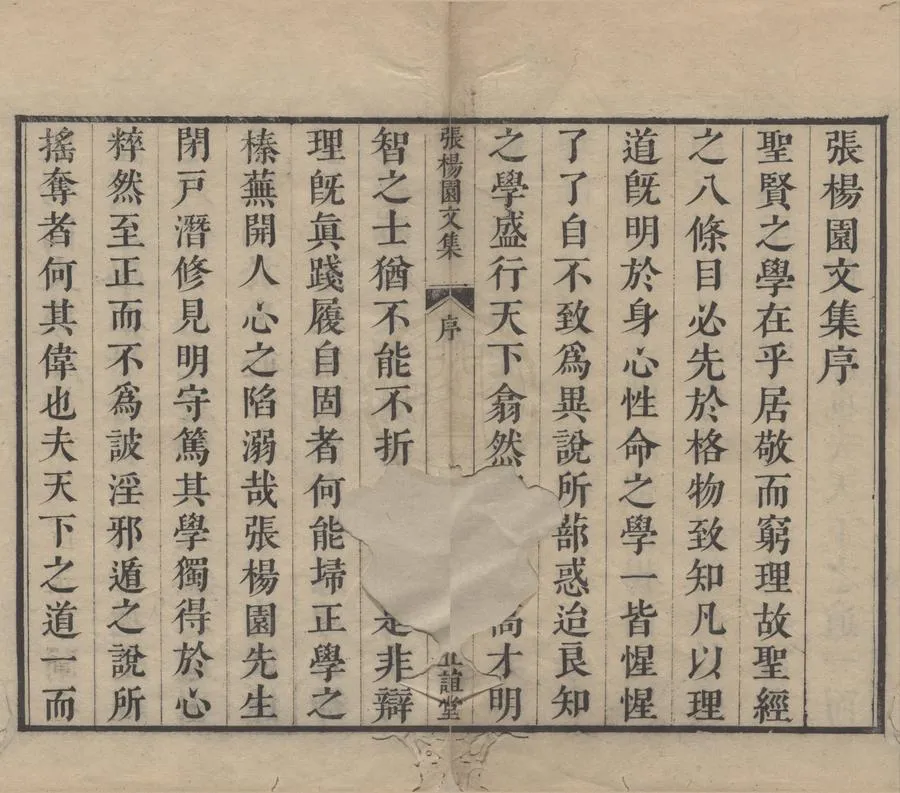 張楊園文集序
聖賢之學在乎居敬而窮理故聖經
之八條目必先於格物致知凡以理
道旣明於身心性命之學一皆惺惺
了了自不致爲異說所蔀惑迨良知
之學盛行天下翕然才明
張楊園文集 序 誼堂
智之士猶不能不折是非辯
理旣眞踐履自固者何能埽正學之
榛蕪開人心之陷溺哉張楊園先生
閉戸潛修見明守篤其學獨得於心
粹然至正而不爲詖淫邪遁之說所
搖奪者何其偉也夫天下之道一而